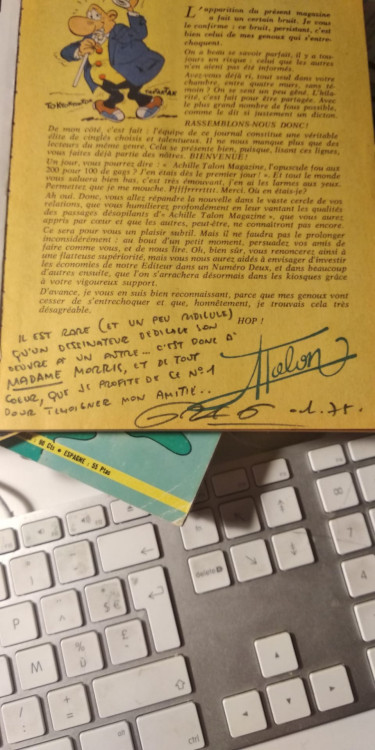 L'apparition du présent magazine
a fait un certain bruit. Je vous
le confirme : ce bruit, persistant, c'est
bien celui de mes genoux qui s'entre-
choquent.
On a beau se savoir parfait, il y a tou-
jours un risque : celui que les autres
n'en aient pas été informés.
Avez-vous déjà ri, tout seul dans votre
chambre, entre quatre murs, sans té-
moin ? On se sent un peu gêné. L'hila-
rité, c'est fait pour être partagée. Avec
le plus grand nombre de fous possible,
comme le dit si justement un dicton.
RASSEMBLONS-NOUS DONC!
De mon côté, c'est fait : l'équipe de ce journal constitue une véritable
élite de cinglés choisis et talentueux. Il ne nous manque plus que des
lecteurs du même genre. Cela se présente bien, puisque, lisant ces lignes,
vous faites déjà partie des nôtres. BIENVENUE!
Un jour, vous pourrez dire : « Achille Talon Magazine, l'opuscule fou aux
200 pour 100 de gags ? J'en étais dès le premier jour! » Et tout le monde
vous saluera bien bas, c'est très émouvant, j'en ai les larmes aux yeux.
Permettez que je me mouche. Merci. Où en étais-je?
Ah oui. Donc, vous allez répandre la nouvelle dans le vaste cercle de vos
relations, que vous humilierez profondément en leur vantant les qualités
des passages désopilants d'« Achille Talon Magazine », que vous aurez
appris par cœur et que les autres, peut-être, ne connaîtront pas encore.
Ce sera pour vous un plaisir subtil. Mais il ne faudra pas le prolonger
inconsidérément : au bout d'un petit moment, persuadez vos amis de
faire comme vous, et de nous lire. Oh, bien sûr, vous renoncerez ainsi à
une flatteuse supériorité, mais vous nous aurez aidés à envisager d'investir
les économies de notre Editeur dans un Numéro Deux, et dans beaucoup
d'autres ensuite, que l'on s'arrachera désormais dans les kiosques grâce
à votre vigoureux support.
D'avance, je vous en suis bien reconnaissant, parce que mes genoux vont
cesser de s'entrechoquer et que, honnêtement, je trouvais cela très
désagréable.
HOP !
IL EST RARE (ET UN PEU RIDICULE)
QU'UN DESSINATEUR DÉDICACE SON
OEUVRE À UN AUTRE... C'EST DONC À
MADAME MORRIS, ET DE TOUT
COEUR, QUE JE PROFITE DE CE N°1
POUR TÉMOIGNER MON AMITIÉ..
Talon
GREG -1.75.
90 Cts ★ ESPAGNE : 55 Ptas
delete
P
M
%
ù
£
$
€
*
!
:
/
+
=
8
7
4
1
ctrl